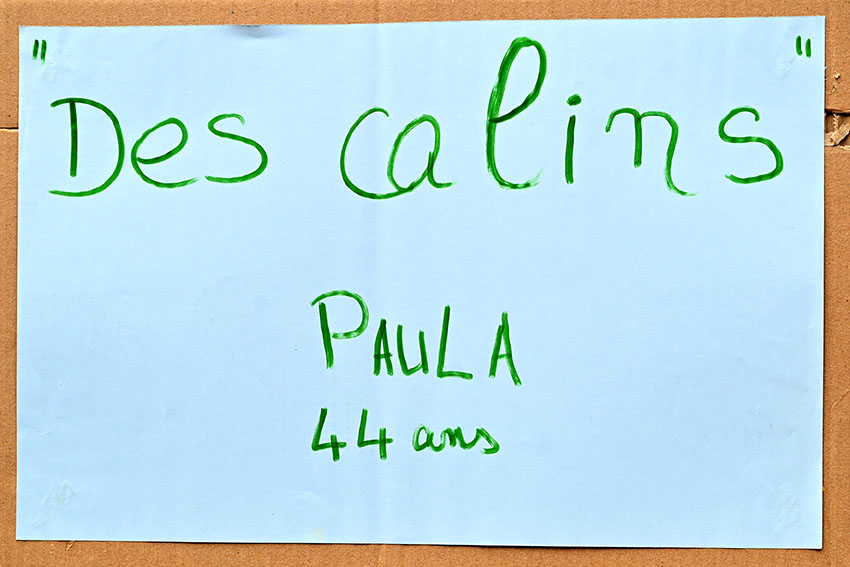 "Des calins"
PAULA
44 ans